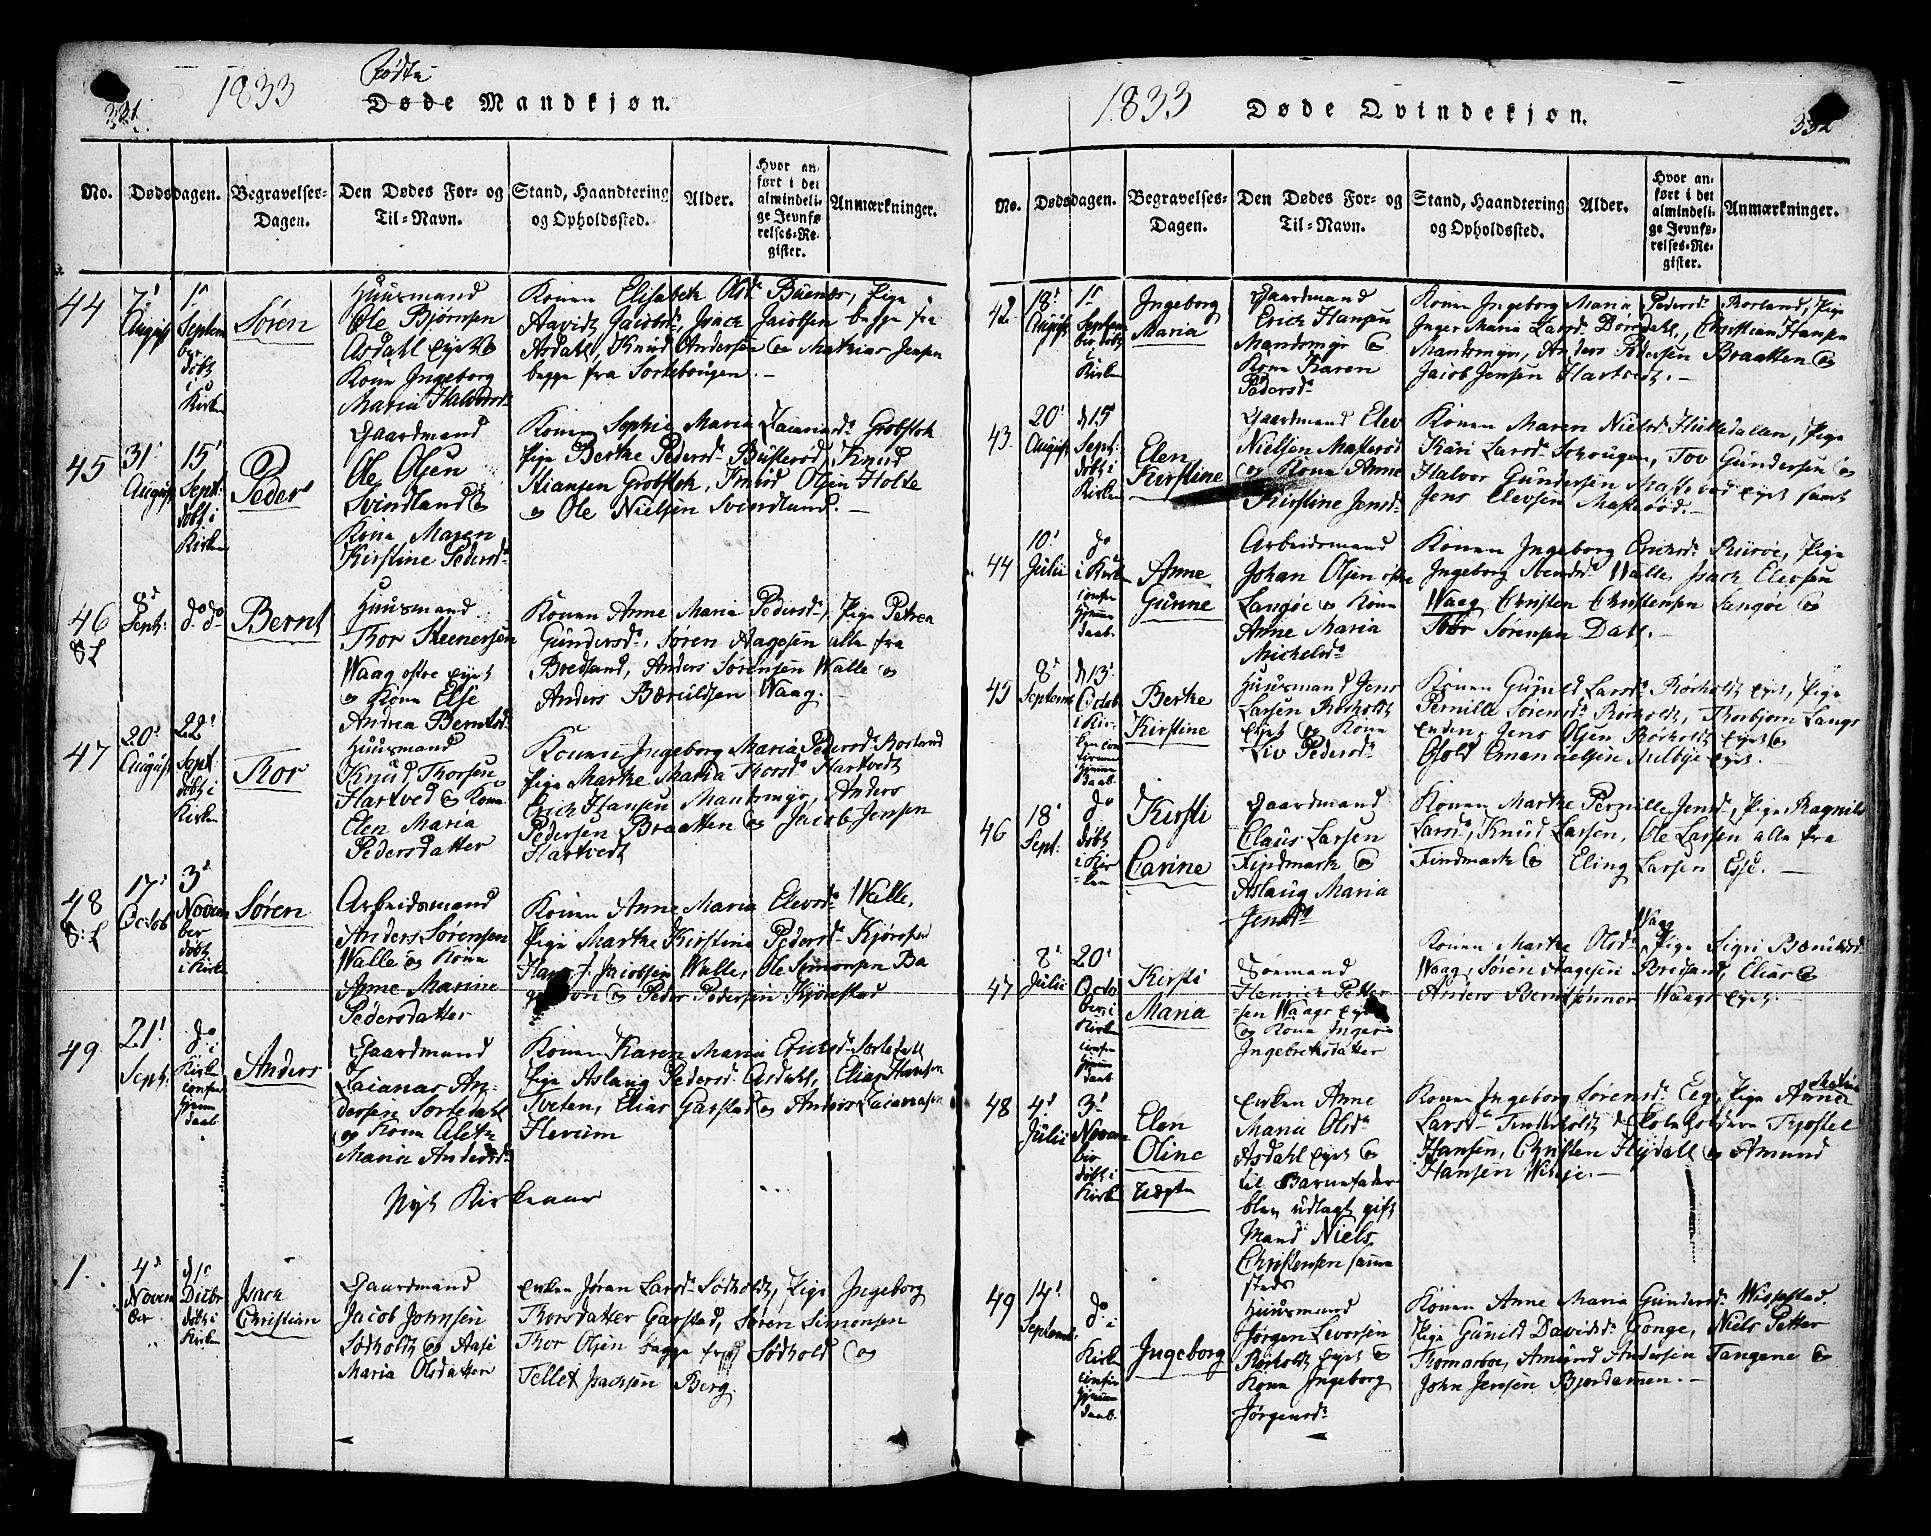 331.
1833
Fødte
Døde Mandkjøn.
No.
Dødsdagen.
Begravelses-
Dagen.
Den Dødes For- og
Til-Navn.
Stand, Haandtering
og Opholdssted.
Alder.
Hvor an-
ført i det
almindeli-
ge Jevnfø-
relses-Re-
gister.
Anmærkninger.
44
7'
August
1'
Septem
ber
døbt
i
Kirken
Søren
Huusmand
Ole Bjørnsen
Asdahl Eyet &
Kone Ingeborg
Maria Halvorsd.
Konen Elisabeth Olsd. Buenes, Pige
Aavidt Jacobsd., Isach Jacobsen begge fra
Asdahl, Knud Andersen & Mathias Jensen
begge fra Sortebougen.
45
31'
August
15'
Sept:
døbt i
Kirken
Peder
Gaardmand
Ole Olsen
Svindland &
Kone Maren
Kirstine Pedersd.
Konen Sophie Maria Zaiariasd. Grobstok
Pige Berthe Pedersd. Busterød, Knud
Stiansen Grobstok, Olsen Holte
& Ole Nielsen Svindland.
46
8d
Sept:
do do
Bernt
Huusmand
Thor Steenersen
Waag østre Eyet
& Kone Else
Andrea Berntsd.
Konen Anne Maria Pedersd., Pige Petrea
Gundersd., Søren Aagesen alle fra
Bredsand, Anders Sørensen Walle &
Anders Bæruldsen Waag.
47
20'
August
22'
Sept
døbt i
Kirken
Thor
Huusmand
Knud Thorsen
Hartved & Kone
Elen Maria
Pedersdatter
Konen Ingeborg Maria Pedersd. Rosland
Pige Marthe Maria Thorsd. Hartvedt
Erich Hansen Mandsmyr, Anders
Pedersen Braatten & Jacob Jensen
Hartvedt
48
17'
Octob
3'
Novem
ber
døbt
i Kirke
Søren
Arbeidsmand
Anders Sørensen
Walle & Kone
Anne Marine
Pedersdatter
Konen Anne Maria Elevsd. Walle,
Pige Marthe Kirstine Pedersd. Kjørestad
Jacobsen Walle, Ole Simonsen Ba
& Peder Pedersen Kjørestad
49
21'
Sept:
do
i
Kirken
Anders
Gaardmand
Zaiarias An-
dersen Sortedahl
& Kone Alethe
Maria Andersd.
Konen Karen Maria Ericksd. Sortedall
Pige Aslaug Pedersd. Asdahl, Elias Hansen
Tveten, Elias Garstad & Anders Zaiariasen
Herum
Nyt Kirkeaar
1.
4d
Novem
ber
d 1'
Decbr
døbt i
Kirken
Isach
Christian
Gaardmand
Jacob Johnsen
Sødholt & Aase
Maria Olsdatter
Enken Jøran Larsd. Sødholt, Pige Ingeborg
Thorsdatter Garstad, Søren Simonsen
Thor Olsen begge fra Sødhold &
Tellef Isachsen Berg.
1833
Døde Qvindekjøn.
332
No.
Dødsdagen.
Begravelses-
Dagen.
Den Dødes For- og
Til-Navn.
Stand, Haandtering
og Opholdssted.
Alder.
Hvor an-
ført i det
almindeli-
ge Jevnfø-
relses-Re-
gister.
Anmærkninger.
42.
18'
August
1'
Septem
ber døbt
i
Kirken
Ingeborg
Maria
Gaardmand
Erich Hansen
Mandsmyr &
Kone Karen
Pedersd.
Konen Ingeborg Maria Pedersd. Rosland, Pige
Inger Maria Larsd. Dørsdahl, Christian Hansen
Mandsmyr, Anders Pedersen Braatten &
Jacob Jensen Hartvedt.
43.
20'
August
d 15'
Sept:
døbt i
Kirken
Elen
Kirstine
Gaardmand Elev
Nielsen Masterød
& Kone Anne
Kirstine Jensd.
Konen Maren Nielsd. Hulledallen, Pige
Kari Larsd. Schougen, Tov Gundersen &
Halvor Gundersen Eyet samt
Jens Elevsen Masterød.
44
10'
Julii
do
i Kirken
Anne
Gunne
Arbeidsmand
Johan Olsen østre
Langøe & Kone
Anne Maria
Michelsd.
Konen Ingeborg Ericksd. Furøe, Pige
Ingeborg Svendsd. Walle, Isach Elevsen
Waag Christen Christensen Langøe &
Thor Sørensen Dahl.
45
8d
Septemb
d 13'
Octob
i Kir-
Berthe
Kirstine
Huusmand Jens
Larsen Rørholt
Eyet & Kone
Liv Pedersd.
Konen Gunild Larsd. Rørholt Eyet, Pige
Pernille Sørensd. Rørholt, Thorbjørn Langs
enden, Jens Olsen Rørholt Eyet &
Olold Emanuelsen Aulbye Eyet.
46
18'
Sept:
do
døbt
i Kir
-ken
Kirsti
Carine
Gaardmand
Claus Larsen
Findmark &
Aslaug Maria
Jensd.
Konen Marthe Pernille Jensd., Pige Ragnild
Larsd., Knud Larsen, Ole Larsen alle fra
Findmark & Eling Larsen Esse.
47
8'
Julii
20'
Octo
ber i
Kirken
Kirsti
Maria
Sømand
Henrich Petter
-sen Waags Eyet
& Kone Inger
Ingebretsdatter
Konen Marthe Olsd. Waag Pige Sigri Bærulds.
Waag, Søren Aagesen Bredsand, Elias &
Anders Berntsønner Waags Eyet.
48
4d
Julii
3'
Novem
ber
døbt i
Kirken
Elen
Oline
Uægte
Enken Anne
Maria Olsd.
Asdahl Eyet &
til Barnefader
blev udlagt gift
Mand Niels
Christensen samme
steds
Konen Ingeborg Sørensd. Eeg, Pige Anne
Larsd. Kjøstel
Hansen, Christen Flydall & Amund
Hansen Wissje.
49
14'
Septemb:
do
i
Kirken
Ingeborg
Huusmand
Jørgen Levorsen
Rørholt Eyet &
Kone Ingeborg
Jørgensd.
Konen Anne Maria Gundersd. Wissestad.
Pige Gunild Davidsd. Gonge, Niels Petter
Thomarboe, Amund Andersen Tangene &
John Jensen Bjerdamen.